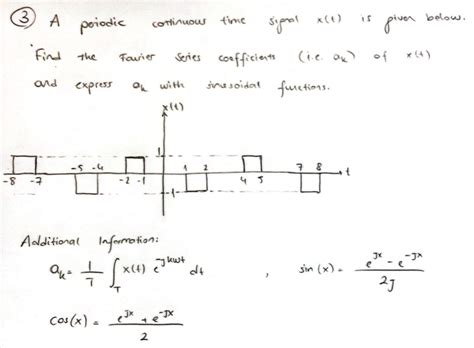 ③ A peiodic continuous time signal x(t) is given below.
Find the Fourier Series coefficients (i.e. aₖ) of x(t)
and express aₖ with sinusoidal functions.
x(t)
1
-8 -7 -5 -4 -2 -1 1 2 4 5 7 8 t
-1
Additional Information:
aₖ = 1/T ∫_T x(t) e^{-jkωt} dt , sin(x) = (e^{jx} - e^{-jx})/2j
cos(x) = (e^{jx} + e^{-jx})/2